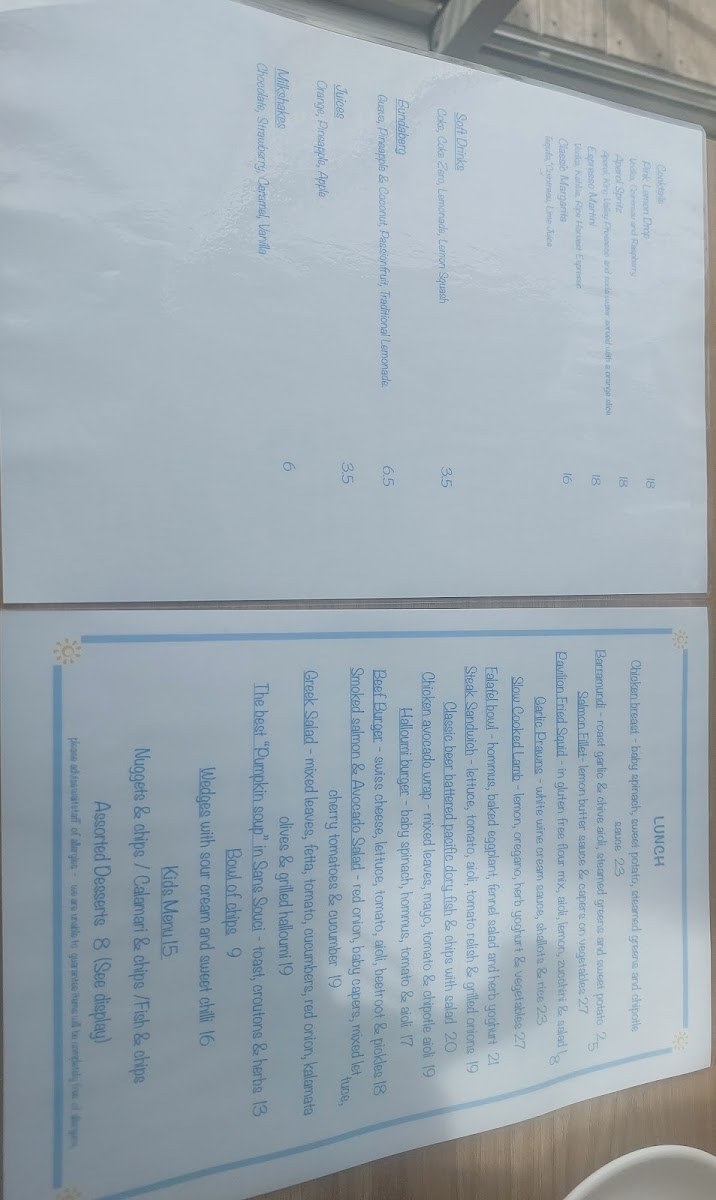 Cocktails
Pink Lemon Drop 18
Vodka, Cointreau and Raspberry
Aperol Spritz 18
Aperol, King Valley Prosecco and soda water served with a orange slice
Espresso Martini 18
Vodka, Kahlua, Ripe Harvest Espresso
Classic Margarita 16
Tequila, Cointreau, Lime Juice
Soft Drinks 3.5
Coke, Coke Zero, Lemonade, Lemon Squash
Bundaberg 6.5
Guava, Pineapple & Coconut, Passionfruit, Traditional Lemonade
Juices 3.5
Orange, Pineapple, Apple
Milkshakes 6
Chocolate, Strawberry, Caramel, Vanilla
LUNCH
Chicken breast - baby spinach, sweet potato, steamed greens and chipotle
sauce 23
Barramundi - roast garlic & chive aioli, steamed greens and sweet potato 25
Salmon Fillet- lemon butter sauce & capers on vegetables 27
Pavilion Fried Squid - in gluten free flour mix, aioli, lemon, zucchini & salad 18
Garlic Prawns - white wine cream sauce, shallots & rice 23
Slow Cooked Lamb - lemon, oregano, herb yoghurt & vegetables 27
Falafel bowl - hommus, baked eggplant, fennel salad and herb yoghurt 21
Steak Sandwich - lettuce, tomato, aioli, tomato relish & grilled onions 19
Classic beer battered pacific dory fish & chips with salad 20
Chicken avocado wrap - mixed leaves, mayo, tomato & chipotle aioli 19
Halloumi burger - baby spinach, hommus, tomato & aioli 17
Beef Burger - swiss cheese, lettuce, tomato, aioli, beetroot & pickles 18
Smoked salmon & Avocado Salad - red onion, baby capers, mixed lettuce,
cherry tomatoes & cucumber 19
Greek Salad - mixed leaves, fetta, tomato, cucumbers, red onion, kalamata
olives & grilled halloumi 19
The best "Pumpkin soup" in Sans Souci - toast, croutons & herbs 13
Bowl of chips 9
Wedges with sour cream and sweet chilli 16
Kids Menu 15
Nuggets & chips / Calamari & chips /Fish & chips
Assorted Desserts 8 (See display)
please advise staff of allergies - we are unable to guarantee items will be completely free of allergens